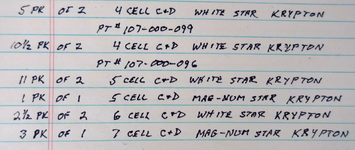 5 PK OF 2 4 CELL C+D WHITE STAR KRYPTON
PT # 107-000-099
10 1/2 PK OF 2 4 CELL C+D WHITE STAR KRYPTON
PT # 107-000-096
11 PK OF 2 5 CELL C+D WHITE STAR KRYPTON
1 PK OF 1 5 CELL C+D MAG-NUM STAR KRYPTON
2 1/2 PK OF 2 6 CELL C+D WHITE STAR KRYPTON
3 PK OF 1 7 CELL C+D MAG-NUM STAR KRYPTON